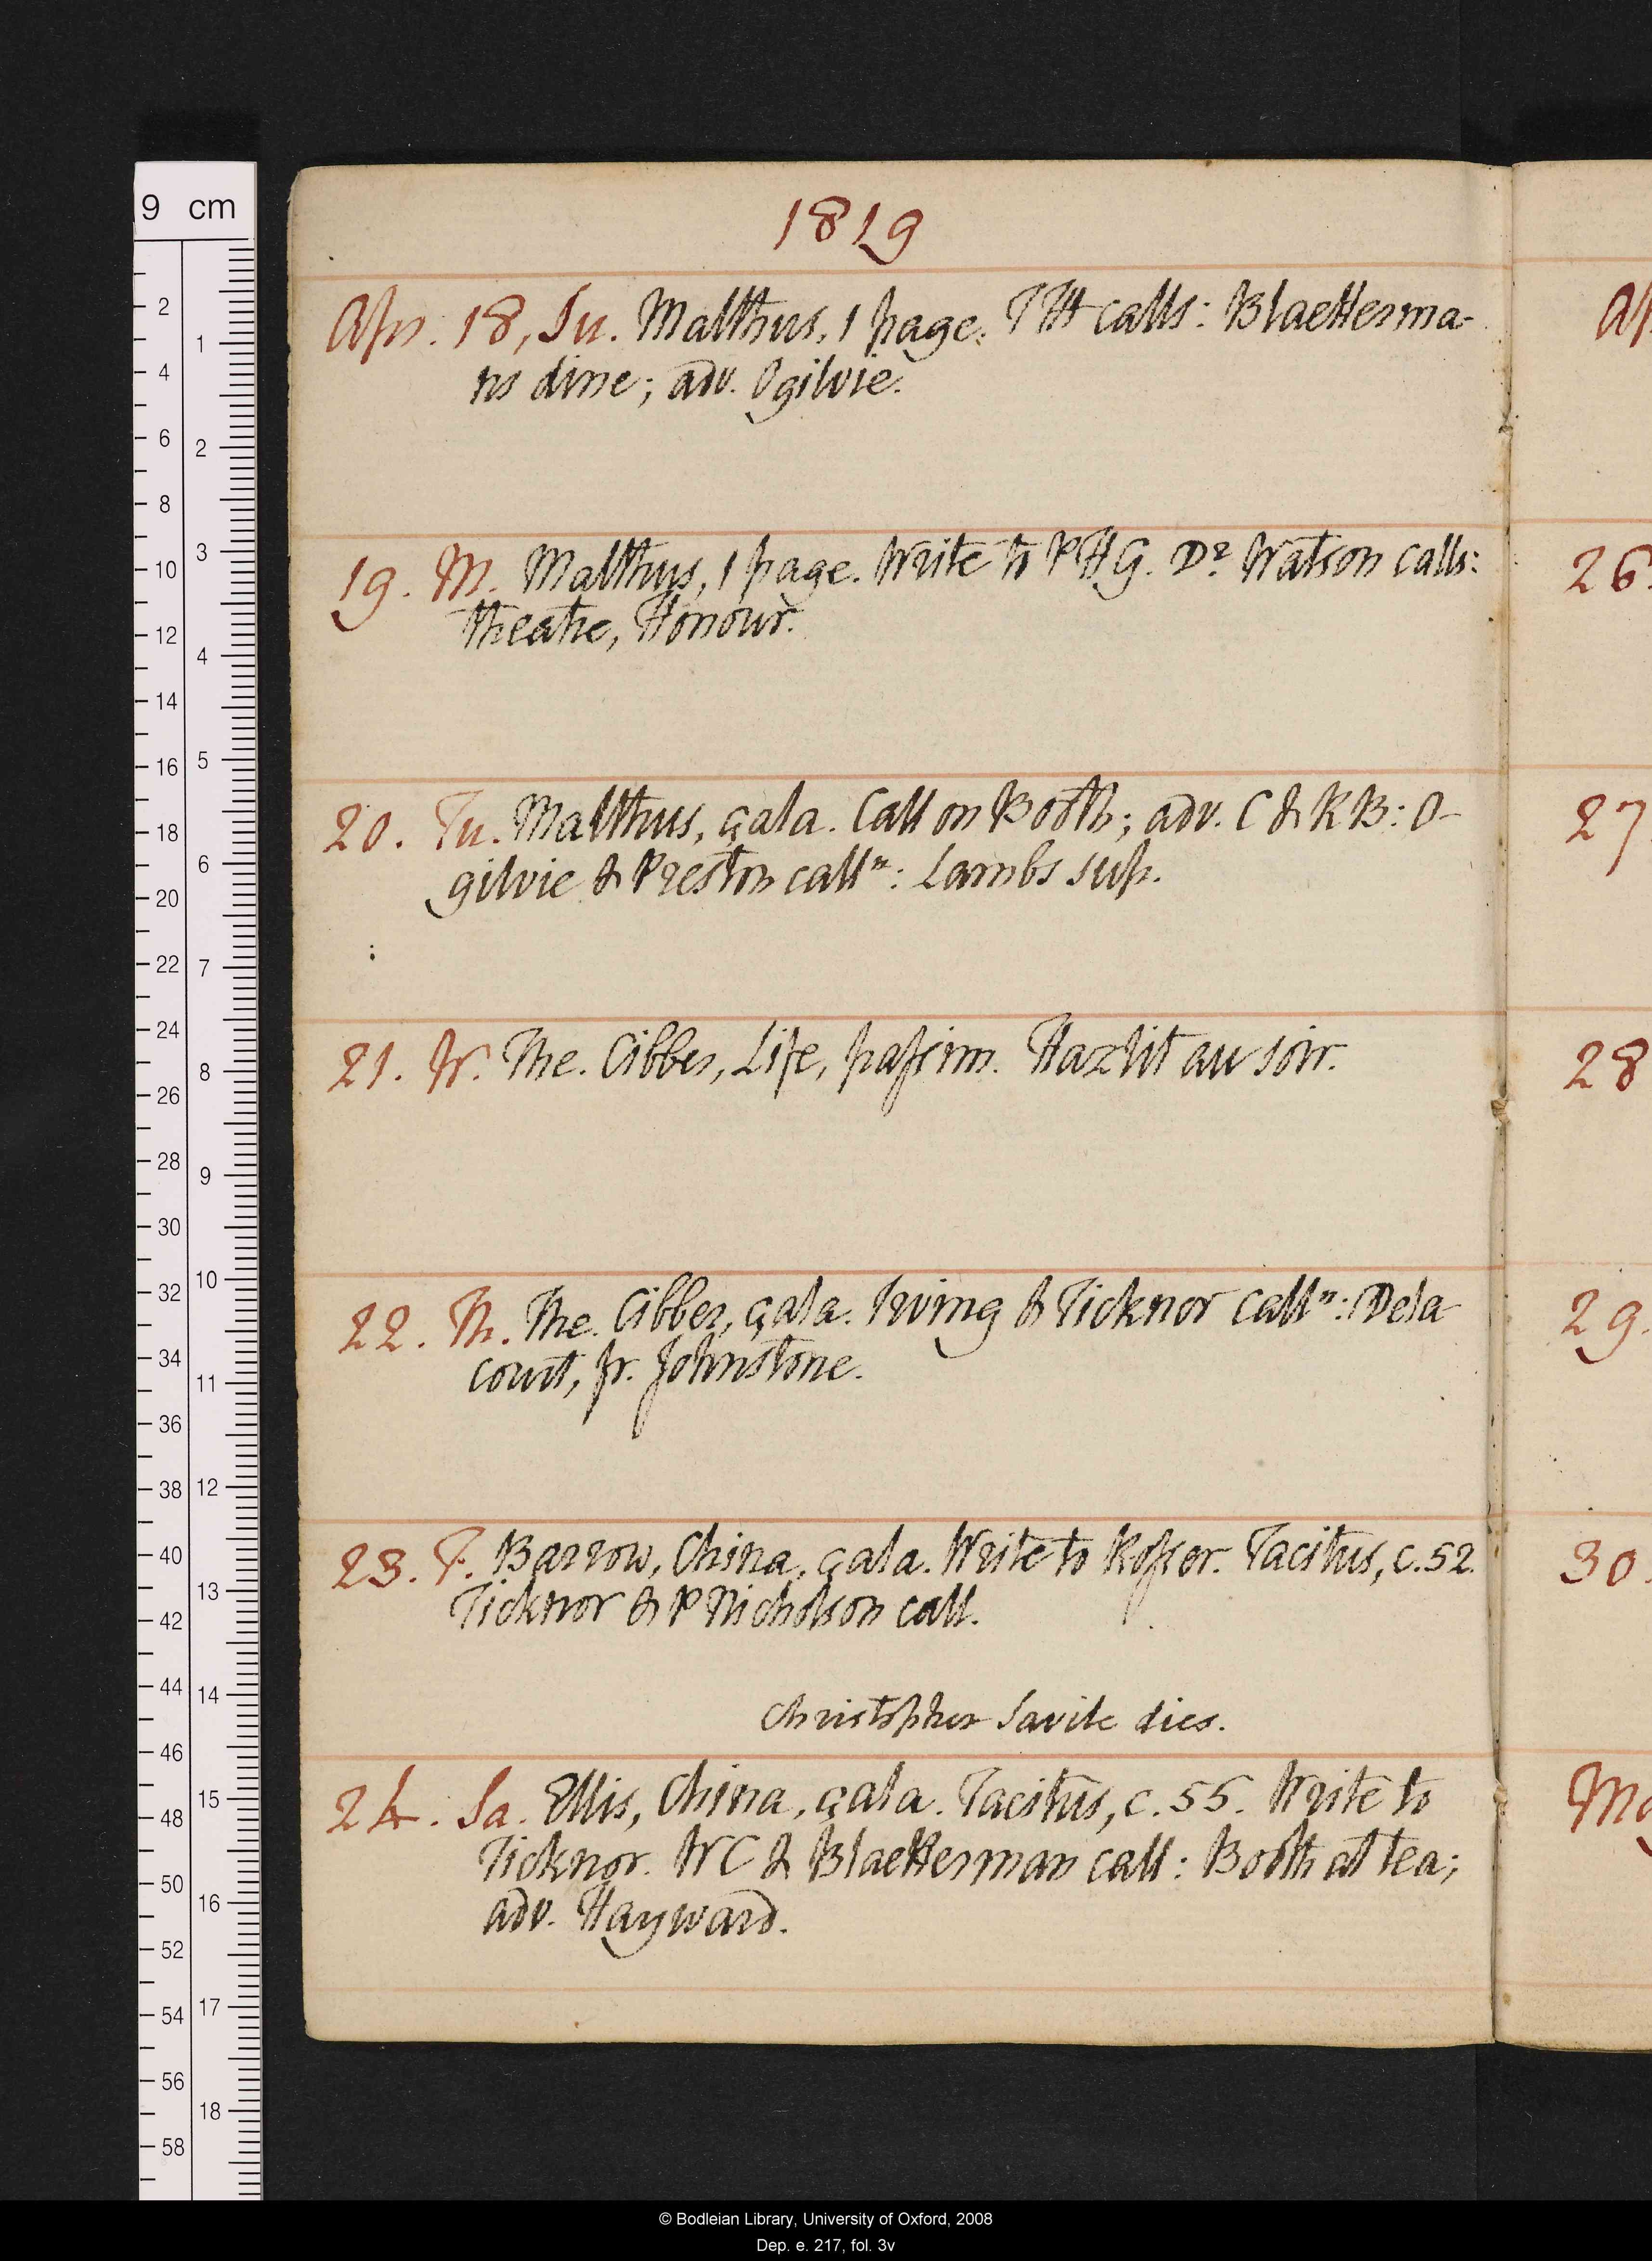 9 cm
1819
Apr. 18, Su. Malthus, 1 page. TH calls: Blaetterma-
ns dine; adv. Ogilvie.
19. M. Malthus, 1 page. Write to PHG. Dr Watson calls:
theatre, Honour.
20. Tu. Malthus, çala. Call on Booth; adv. C & K B: O-
gilvie & Preston calln: Lambs sup.
21. W. The. Cibber, Life, passim. Hazlit au soir.
22. Th. The. Cibber, çala. Irving & Ticknor calln: Dela-
court, fr. Johnstone.
23. F. Barrow, China, çala. Write to Rosser. Tacitus, c. 52.
Ticknor & P Nicholson call.
Christopher Savile dies.
24. Sa. Ellis, China, çala. Tacitus, c. 55. Write to
Ticknor. WC & Blaetterman call: Booth at tea;
adv. Hayward.
Ap
26.
27
28
29.
30.
Ma
2
4
6
8
10
12
14
16
18
20
22
24
26
28
30
32
34
36
38
40
42
44
46
48
50
52
54
56
58
1
2
3
4
5
6
7
8
9
10
11
12
13
14
15
16
17
18
© Bodleian Library, University of Oxford, 2008
Dep. e. 217, fol. 3v